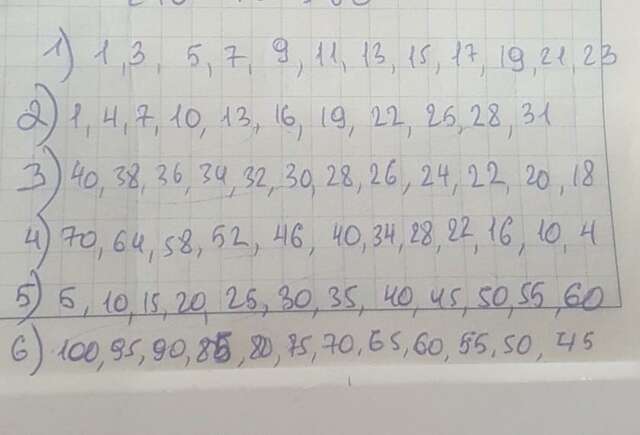 1) 1, 3, 5, 7, 9, 11, 13, 15, 17, 19, 21, 23
2) 1, 4, 7, 10, 13, 16, 19, 22, 25, 28, 31
3) 40, 38, 36, 34, 32, 30, 28, 26, 24, 22, 20, 18
4) 70, 64, 58, 52, 46, 40, 34, 28, 22, 16, 10, 4
5) 5, 10, 15, 20, 25, 30, 35, 40, 45, 50, 55, 60
6) 100, 95, 90, 85, 80, 75, 70, 65, 60, 55, 50, 45